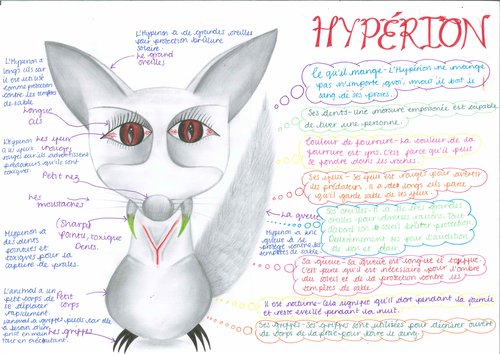 HYPÉRION
L'Hyperion a de grandes oreilles
pour protection brûlure
solaire.
Le grand
oreilles
L'Hyperion a
longs cils car
il est utilisé
comme protection
contre les tempêtes
de sable
Longue
cils
L'Hyperion
a les yeux
rouges car ils avertissent
prédateurs qu'ils sont
Les yeux
rouges
Petit nez
Les
moustaches
(Sharp)
Pointu, toxique
Dents.
Hyperion a
des dents
pointues et
toxiques pour la
capture de proies.
L'animal a un
petit corps de
se déplacer
rapidement.
Petit
corps
L'animal a griffes pieds car elle
a besoin d'une
prise en main
tout en précautant.
Les griffes
La queue
Hyperion a une
queue à se
protéger contre les
tempêtes de sable
Ce qu'il mange - L'Hyperion ne mange
pas n'importe quoi, mais il boit le
sang de ses proies.
Ses dents - une morsure empoisonée est capable
de tuer une personne.
Couleur de fourrure - La couleur de la
fourrure est gris. C'est parce qu'il peut
se fondre dans les roches.
Ses yeux - Ses yeux est rouges pour avertir
les prédateurs. Il a des longs cils parce
qu'il garde sable de ses yeux.
Ses oreilles - Il a de très grandes
oreilles pour diverses raisons. Tout
d'abord son le soleil brûler protection,
Deuxièmement pour l'audition
de loin et clair
Sa queue - Sa queue est longue et touffue.
C'est parce qu'il est nécessaire pour l'ombre
du soleil et de la protection contre les
tempêtes de sable
Il est nocturne - cela signifie qu'il dort pendant la journée
et reste éveillé pendant la nuit.
Ses griffes - Ses griffes sont utilisées pour déchirer ouvert
le corps de la proie pour boire le sang